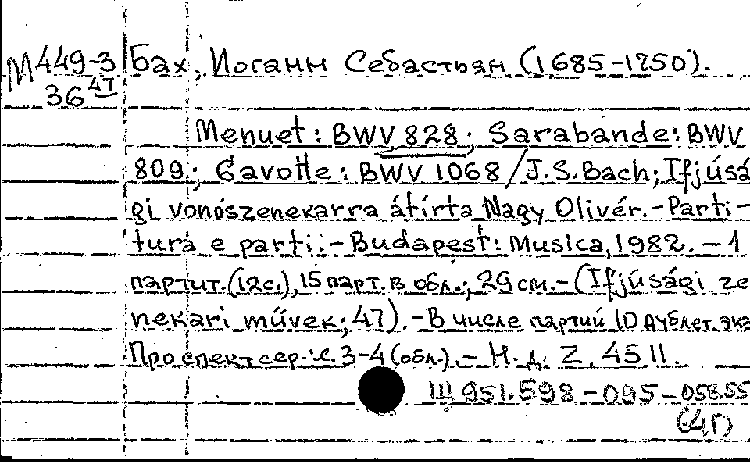 М 449-3 Бах, Иоганн Себастьян (1685-1750).
36 47
Menuet: BWV 828; Sarabande: BWV
809; Gavotte: BWV 1068 / J.S.Bach; Ifjúsá
gi vonószenekarra átírta Nagy Olivér.-Parti-
tura e parti.-Budapest: Musica, 1982. - 1
партит.(12с.), 15 парт. в обл.; 29 см.-(Ifjúsági ze
nekari művek; 47).-В числе партий 10 дублет. экз
Проспект сер. с. 3-4 (обл.).- Н. д. Z. 4511.
Ш 951.598-095-058.55
(4Г)